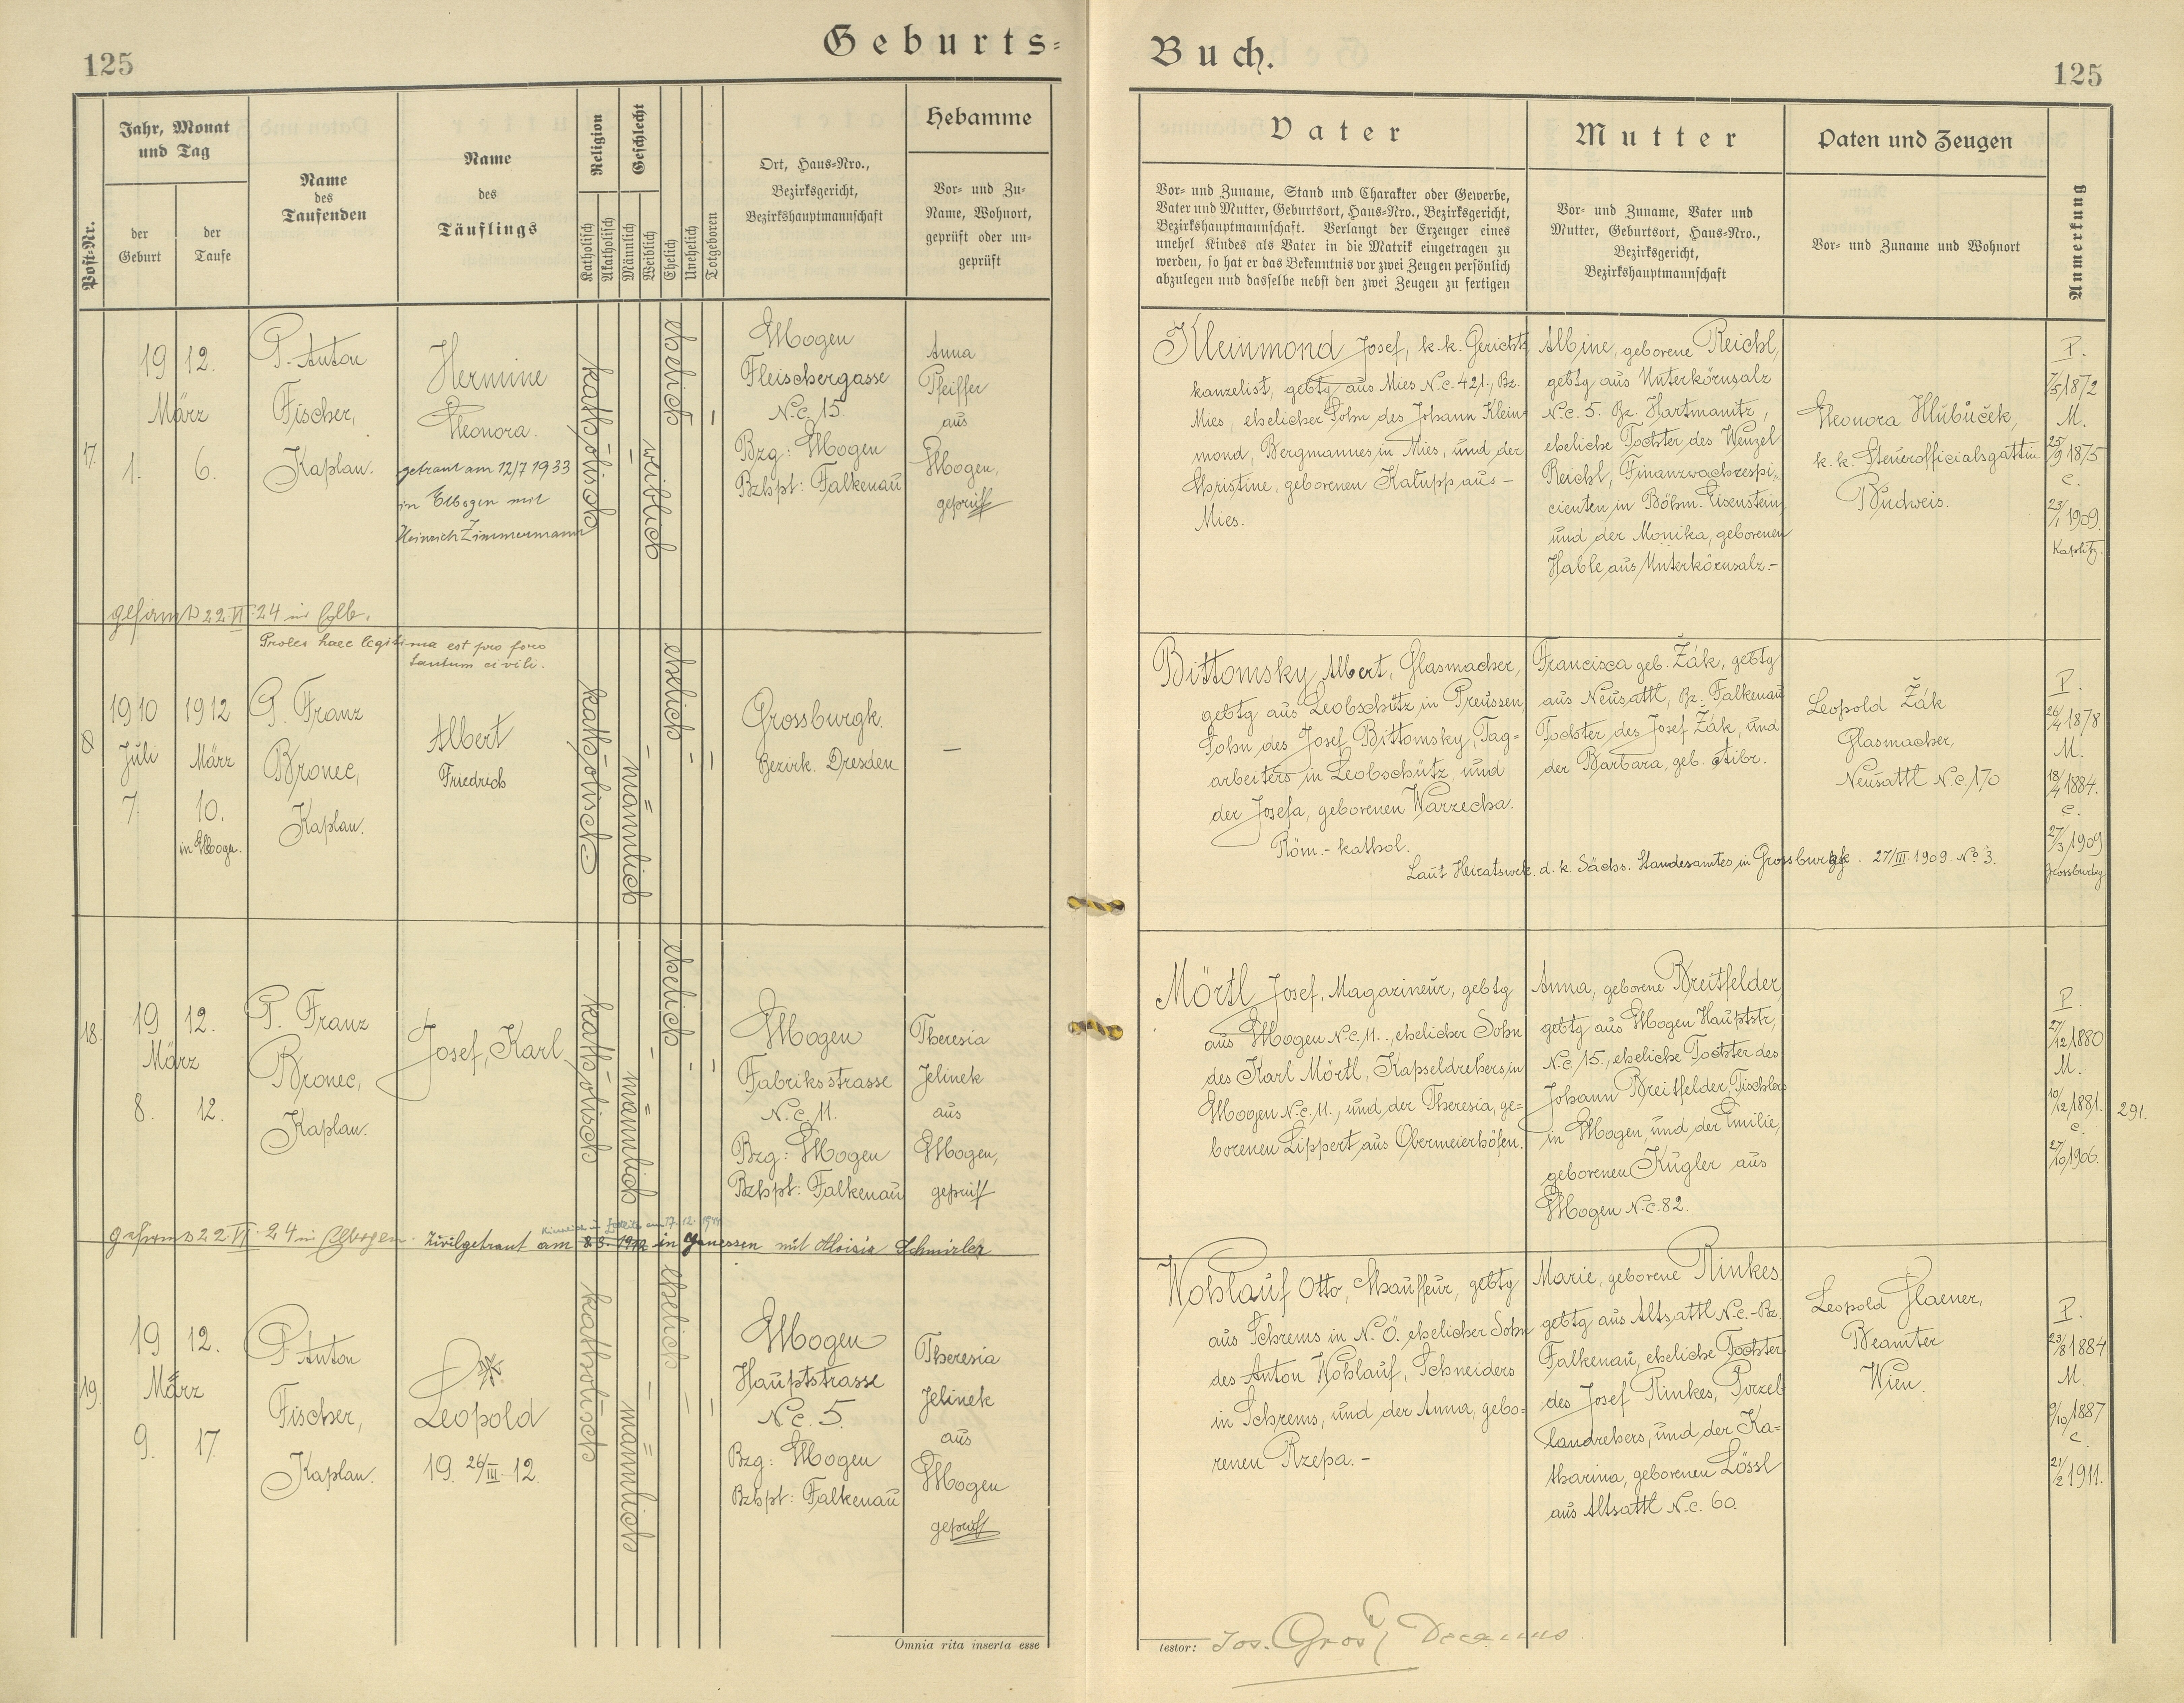 125
Geburts=
Buch.
125
Post-Nr.
Jahr, Monat
und Tag
der
Geburt
der
Taufe
Name
des
Taufenden
Name
des
Täuflings
Religion
Katholisch
Akatholisch
Geschlecht
Männlich
Weiblich
Ehelich
Unehelich
Totgeboren
Ort, Haus=Nro.,
Bezirksgericht,
Bezirkshauptmannschaft
Hebamme
Vor= und Zu=
Name, Wohnort,
geprüft oder un=
geprüft
Vater
Vor= und Zuname, Stand und Charakter oder Gewerbe,
Vater und Mutter, Geburtsort, Haus=Nro., Bezirksgericht,
Bezirkshauptmannschaft. Verlangt der Erzeuger eines
unehel Kindes als Vater in die Matrik eingetragen zu
werden, so hat er das Bekenntnis vor zwei Zeugen persönlich
abzulegen und dasselbe nebst den zwei Zeugen zu fertigen
Mutter
Vor= und Zuname, Vater und
Mutter, Geburtsort, Haus=Nro.,
Bezirksgericht,
Bezirkshauptmannschaft
Paten und Zeugen
Vor= und Zuname und Wohnort
Anmerkung
17.
19 12.
März
1. 6.
P. Anton
Fischer,
Kaplan.
Hermine
Eleonora.
getraut am 12/7 1933
in Elbogen mit
Heinrich Zimmermann
katholisch
weiblich
ehelich
Elbogen
Fleischergasse
N.c. 15.
Bzg: Elbogen
Bzhpt: Falkenau
Anna
Pfeiffer
aus
Elbogen,
geprüft
Kleinmond Josef, k.k. Gerichts
kanzelist, gebtg aus Mies N.c. 421., Bz.
Mies, ehelicher Sohn des Johann Klein=
mond, Bergmannes in Mies, und der
Christine, geborenen Kalupp aus –
Mies.
Albine, geborene Reichl,
gebtg aus Unterkörnsalz
N.c. 5. Bz. Hartmanitz,
eheliche Tochter des Wenzel
Reichl, Finanzwachrespi=
cienten in Böhm. Eisenstein,
und der Monika, geborenen
Hable aus Unterkörnsalz.–
Eleonora Hlubuček,
k.k. Steuerofficialsgattin
Budweis.
P.
7/5 1872
M.
25/9 1875
C.
23/1 1909.
Kaplitz.
gefirmt 22 VI. 24 in Elb.
Proles haec legitima est pro foro
tantum civili.
1910 1912
Juli März
7. 10.
in Elbogen.
P. Franz
Bronec,
Kaplan.
Albert
Friedrich
katholisch
männlich
ehelich
Grossburgk.
Bezirk. Dresden
–
Bittomsky Albert, Glasmacher,
gebtg aus Leobschütz in Preussen,
Sohn des Josef Bittomsky, Tag=
arbeiters in Leobschütz, und
der Josefa, geborenen Warzecha.
Röm.- kathol.
Francisca geb. Žák, gebtg
aus Neusattl, Bz. Falkenau
Tochter des Josef Žák, und
der Barbara, geb. Aibr.
Leopold Žák
Glasmacher,
Neusattl N.c. 170
P.
26/4 1878
M.
18/4 1884.
C.
27/3 1909
Grossburgk
Laut Heiratsurk. d. k. Sächs. Standesamtes in Grossburgk. 27/III. 1909. No 3.
18.
19 12.
März
8. 12.
P. Franz
Bronec,
Kaplan.
Josef, Karl
katholisch
männlich
ehelich
Elbogen
Fabriksstrasse
N.c. 11.
Bzg: Elbogen
Bzhpt: Falkenau
Theresia
Jelinek
aus
Elbogen,
geprüft
Mörtl Josef, Magazineur, gebtg
aus Elbogen N.c. 11., ehelicher Sohn
des Karl Mörtl, Kapseldrehers in
Elbogen N.c. 11., und der Theresia, ge=
borenen Lippert aus Obermeierhöfen.
Anna, geborene Breitfelder,
gebtg aus Elbogen Hauptstr,
N.c. 15., eheliche Tochter des
Johann Breitfelder, Tischlers
in Elbogen, und der Emilie,
geborenen Kugler aus
Elbogen N.c. 82.
P.
27/12 1880
M.
10/12 1881.
C.
27/10 1906.
291.
gefirmt 22 VI. 24 in Elbogen. Zivilgetraut am in mit Aloisia Schmirler
19.
19 12.
März
9. 17.
P. Anton
Fischer,
Kaplan.
Leopold
19. 26/III. 12.
katholisch
männlich
ehelich
Elbogen
Hauptstrasse
N.c. 5.
Bzg: Elbogen
Bzhpt: Falkenau
Theresia
Jelinek
aus
Elbogen
geprüft
Wohlauf Otto, Chauffeur, gebtg
aus Schrems in N.Ö. ehelicher Sohn
des Anton Wohlauf, Schneiders
in Schrems, und der Anna, gebo=
renen Rzepa.–
Marie, geborene Rinkes
gebtg aus Altsattl N.c.–Bz.
Falkenau, eheliche Tochter
des Josef Rinkes, Porzel
landrehers, und der Ka=
tharina, geborenen Lössl
aus Altsattl N.c. 60.
Leopold
Beamter
Wien.
P.
23/8 1884
M.
9/10 1887
C.
21/2 1911.
Omnia rita inserta esse
testor: Jos. Gros Decanus